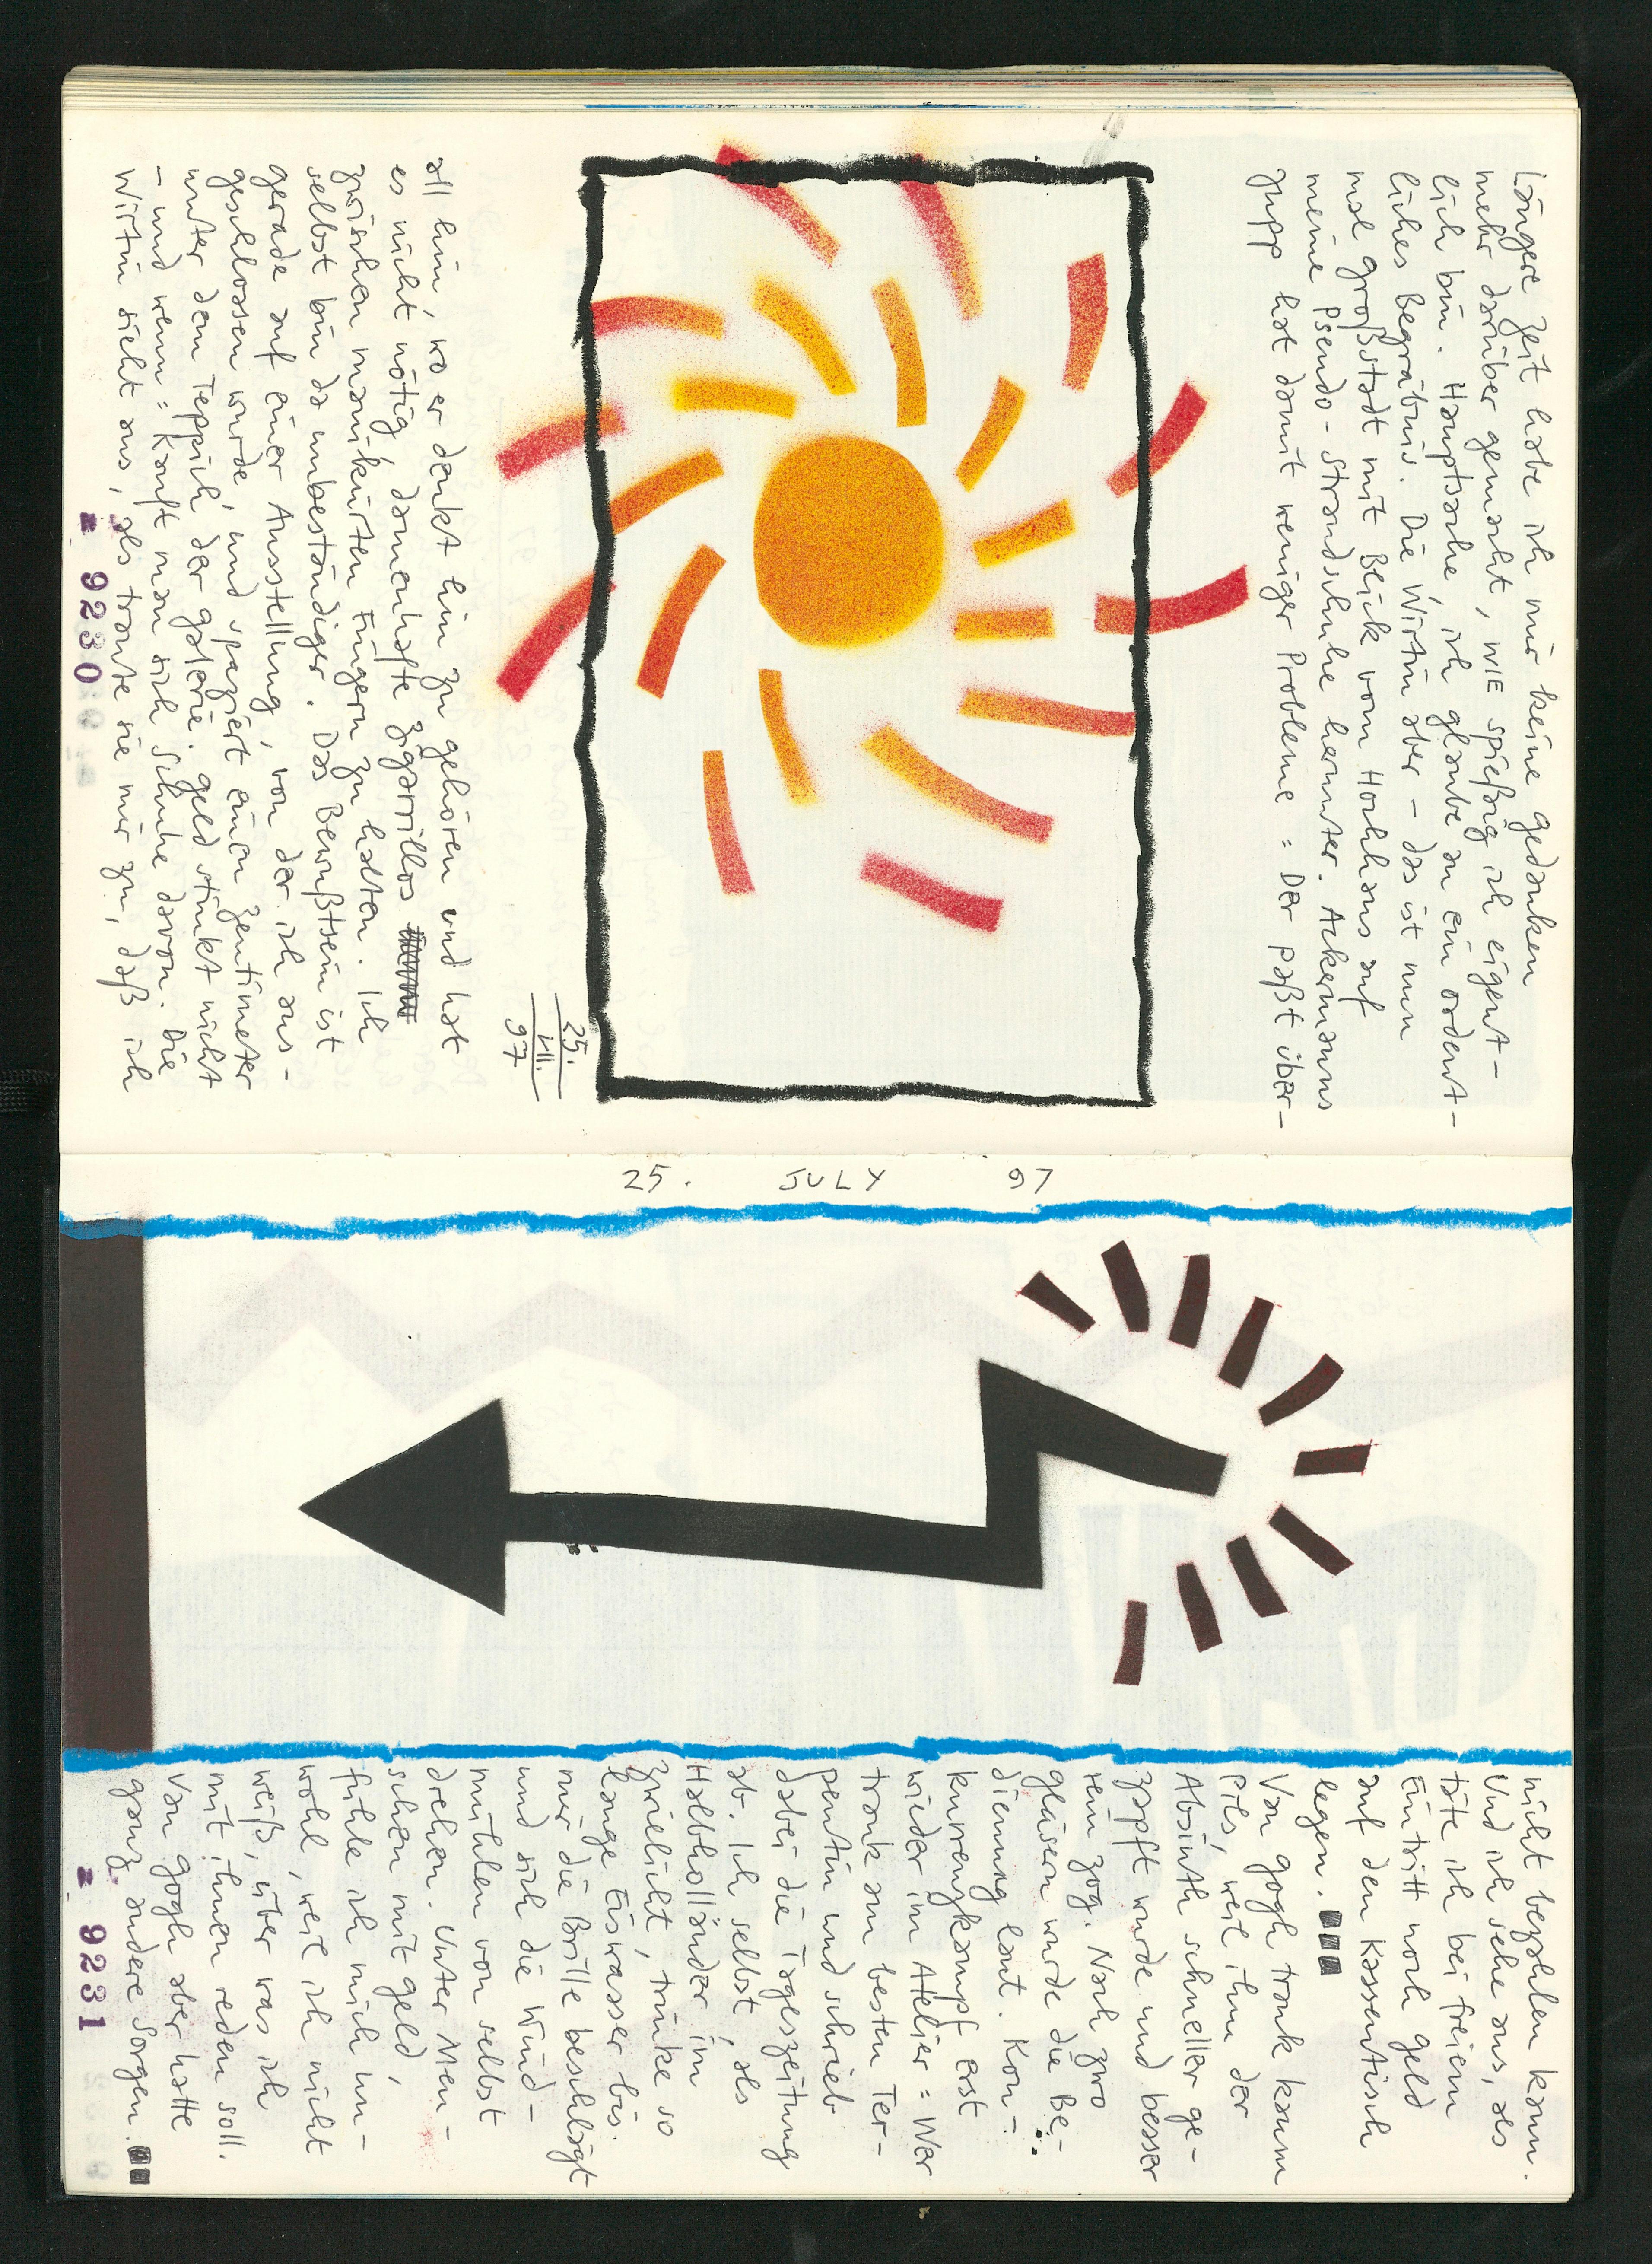 Längere Zeit habe ich mir keine Gedanken
mehr darüber gemacht, wie spießig ich eigent-
lich bin. Hauptsache, ich glaube an ein ordent-
liches Begräbnis. Die Wirtin aber – das ist nun
mal Großstadt mit Blick vom Hochhaus auf
meine Pseudo-Strandschuhe herunter. Ackermanns
Jupp hat damit weniger Probleme: Der paßt über-
all hin, wo er denkt hin zu gehören und hat
es nicht nötig, damenhafte Zigarillos
zwischen manikürten Fingern zu halten. Ich
selbst bin da unbeständiger. Das Bewußtsein ist
gerade auf einer Ausstellung, von der ich aus-
geschlossen wurde, und spaziert einen Zentimeter
unter dem Teppich der Galerie. Geld stinkt nicht
– und wenn: Kauft man sich Schuhe davon. Die
Wirtin sieht aus, als traute sie mir zu, daß ich
25.
VII.
97
9230
25. JULY 97
nicht bezahlen kann.
Und ich sehe aus, als
täte ich bei freiem
Eintritt noch Geld
auf den Kassentisch
legen.
Van Gogh trank kaum
Pils, weil ihm der
Absinth schneller ge-
zapft wurde und besser
rein zog. Nach zwo
Gläsern wurde die Be-
dienung laut. Kon-
kurrenzkampf erst
wieder im Atelier: Wer
trank am besten Ter-
pentin und schrieb
dabei die Tageszeitung
ab. Ich selbst, als
Halbholländer im
Zwielicht, trinke so
lange Eiswasser bis
mir die Brille beschlägt
und sich die Wind-
mühlen von selbst
drehen. Unter Men-
schen mit Geld,
fühle ich mich un-
wohl, weil ich nicht
weiß, über was ich
mit ihnen reden soll.
Van Gogh aber hatte
ganz andere Sorgen.
9231